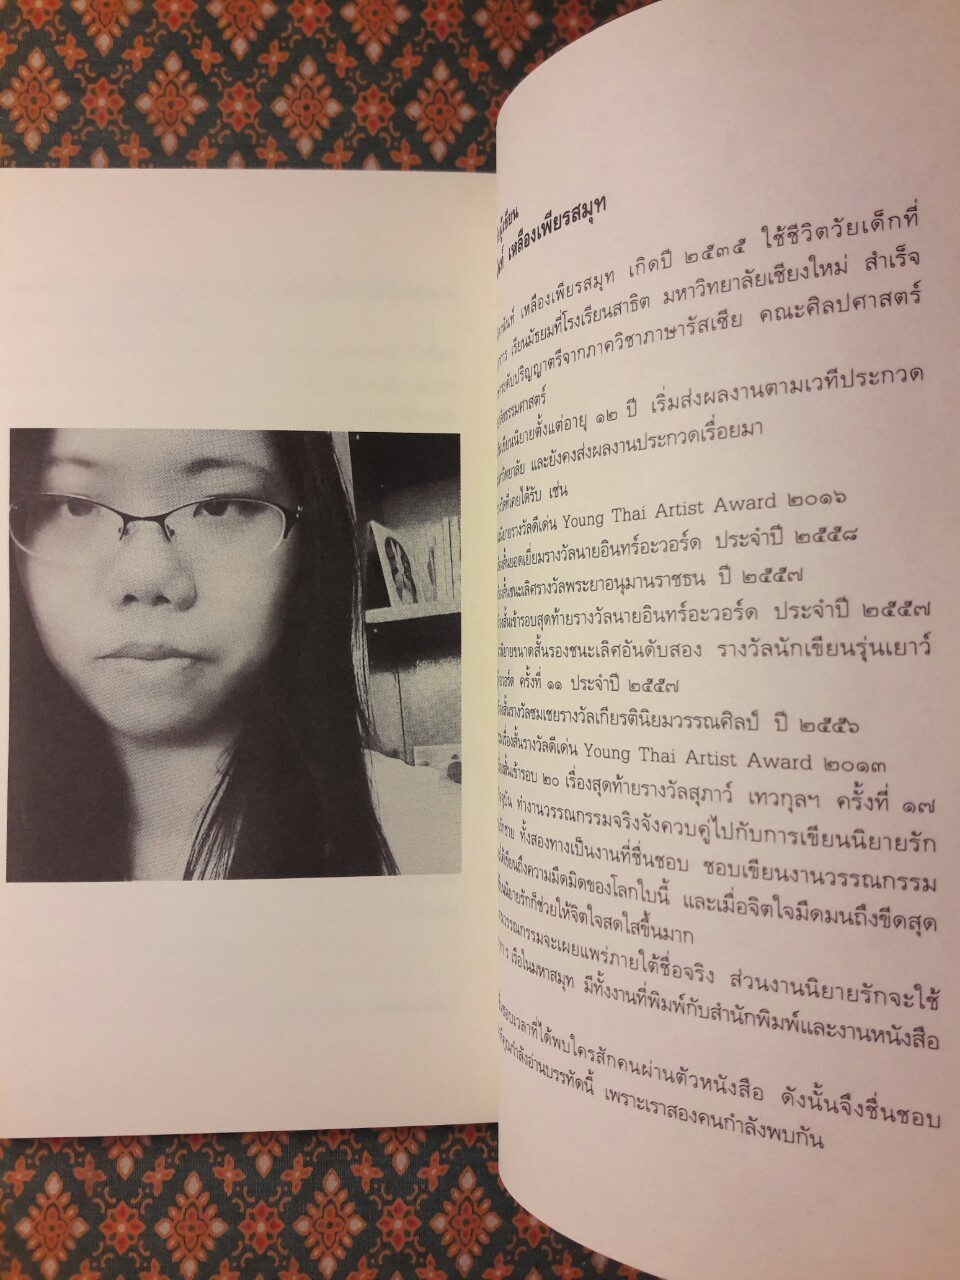 เหลืองเพียรสมุท
เหลืองเพียรสมุท เกิดปี ๒๕๓๕ ใช้ชีวิตวัยเด็กที่
เรียนมัธยมที่โรงเรียนสาธิต มหาวิทยาลัยเชียงใหม่ สำเร็จ
ระดับปริญญาตรีจากภาควิชาภาษารัสเซีย คณะศิลปศาสตร์
ธรรมศาสตร์
เขียนนิยายตั้งแต่อายุ ๑๒ ปี เริ่มส่งผลงานตามเวทีประกวด
และยังคงส่งผลงานประกวดเรื่อยมา
ที่เคยได้รับ เช่น
รางวัลดีเด่น Young Thai Artist Award ๒๐๑๖
ยอดเยี่ยมรางวัลนายอินทร์อะวอร์ด ประจำปี ๒๕๕๘
ชนะเลิศรางวัลพระยาอนุมานราชธน ปี ๒๕๕๗
เข้ารอบสุดท้ายรางวัลนายอินทร์อะวอร์ด ประจำปี ๒๕๕๗
ขนาดสั้นรองชนะเลิศอันดับสอง รางวัลนักเขียนรุ่นเยาว์
ครั้งที่ ๑๑ ประจำปี ๒๕๕๗
รางวัลชมเชยรางวัลเกียรตินิยมวรรณศิลป์ ปี ๒๕๕๖
เรื่องสั้นรางวัลดีเด่น Young Thai Artist Award ๒๐๑๓
เข้ารอบ ๒๐ เรื่องสุดท้ายรางวัลสุภาว์ เทวกุลฯ ครั้งที่ ๑๗
ทำงานวรรณกรรมจริงจังควบคู่ไปกับการเขียนนิยายรัก
ทั้งสองทางเป็นงานที่ชื่นชอบ ชอบเขียนงานวรรณกรรม
ได้เขียนถึงความมืดมิดของโลกใบนี้ และเมื่อจิตใจมืดมนถึงขีดสุด
นิยายรักก็ช่วยให้จิตใจสดใสขึ้นมาก
วรรณกรรมจะเผยแพร่ภายใต้ชื่อจริง ส่วนงานนิยายรักจะใช้
ร เรือในมหาสมุท มีทั้งงานที่พิมพ์กับสำนักพิมพ์และงานหนังสือ
ชอบเวลาที่ได้พบใครสักคนผ่านตัวหนังสือ ดังนั้นจึงชื่นชอบ
คุณกำลังอ่านบรรทัดนี้ เพราะเราสองคนกำลังพบกัน